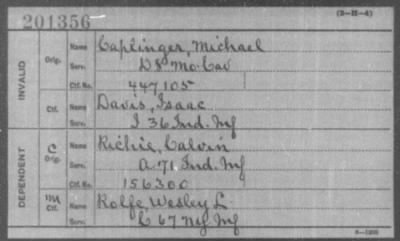 201356 (3-II-4)
INVALID
Orig. Name Caplinger, Michael
Serv. D 8 Mo. Cav
Ctf. No. 447105
Ctf. Name Davis, Isaac
Serv. I 36 Ind. Inf
DEPENDENT
C Orig. Name Richie, Calvin
Serv. A. 71 Ind. Inf
Ctf. No. 156300
M Ctf. Name Rolfe Wesley L
Serv. C 67 Ny Inf